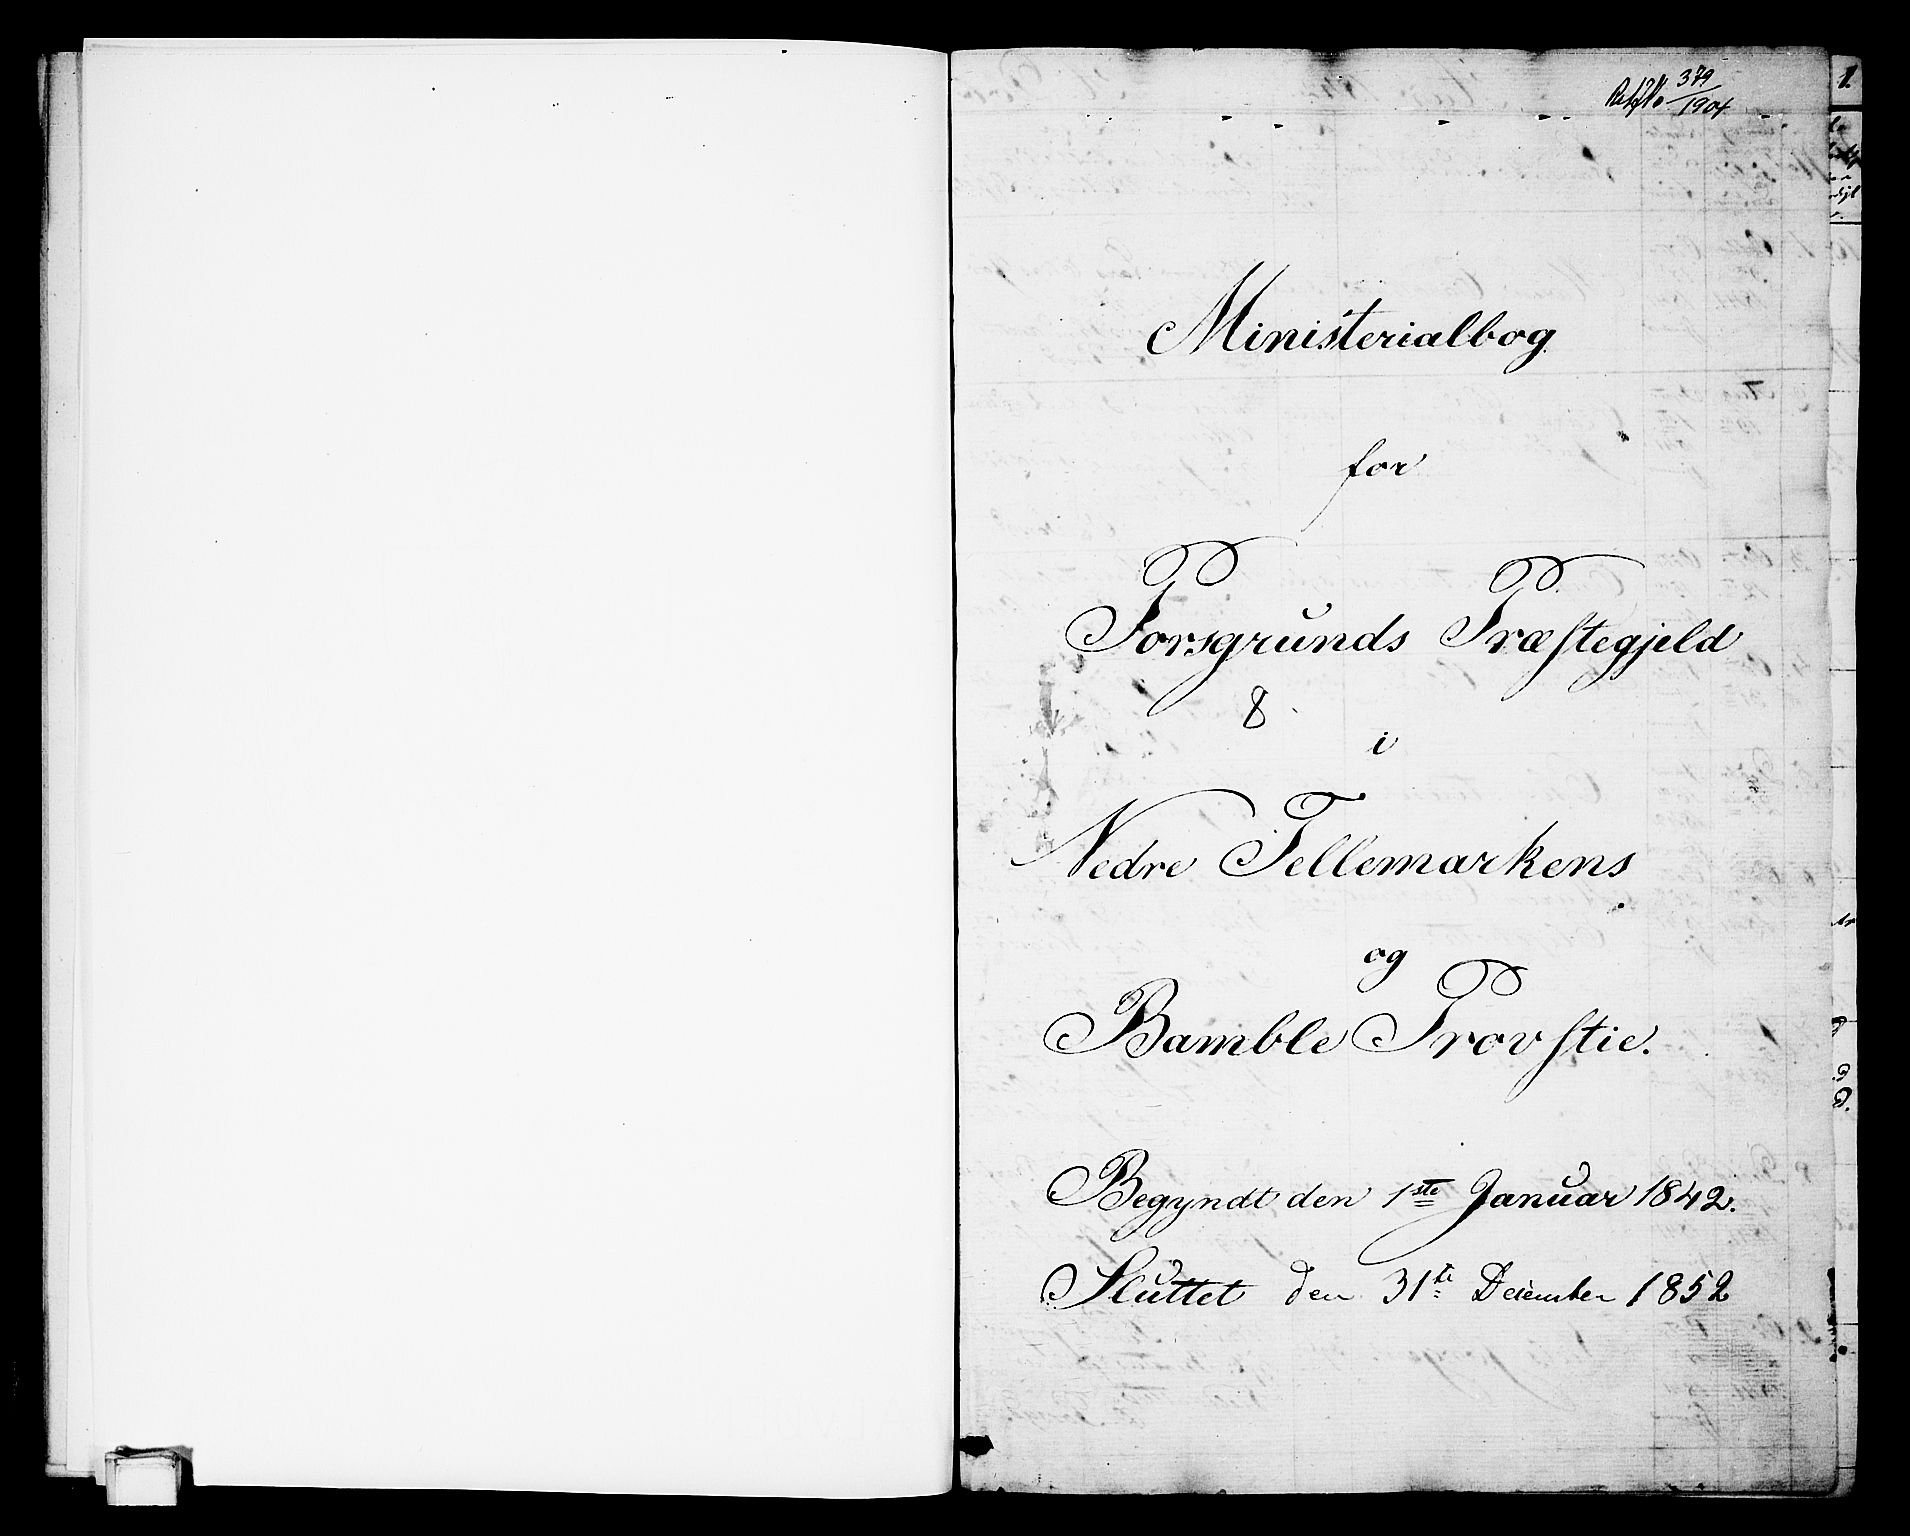 379
1904
Ministerialbog
for
Porsgrunds Præstegjeld
8.
i
Nedre Tellemarkens
og
Bamble Provstie.
Begyndt den 1ste Januar 1842.
Sluttet den 31te December 1852
1.